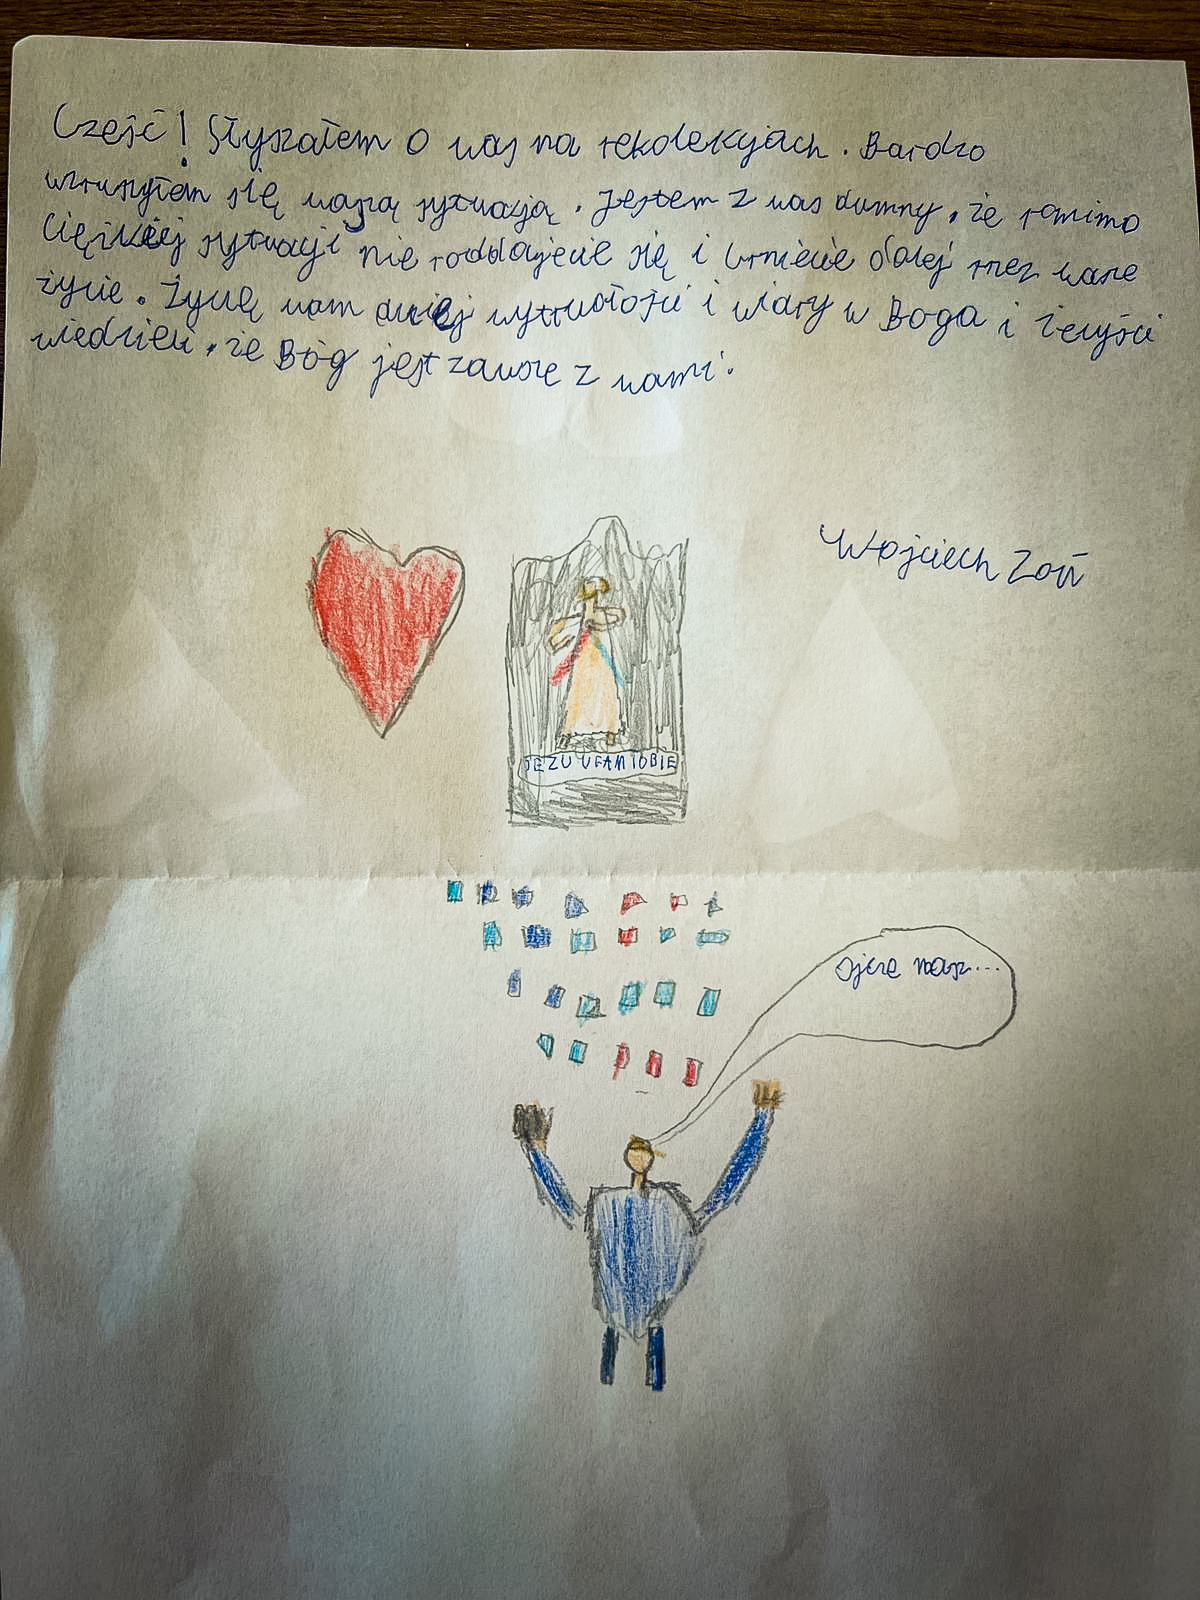 Cześć! Słyszałem o was na rekolekcjach. Bardzo
wzruszyłem się waszą sytuacją. Jestem z was dumny, że pomimo
ciężkiej sytuacji nie poddajecie się i brniecie dalej przez wasze
życie. Życzę wam dużej wytrwałości i wiary w Boga i żebyście
wiedzieli, że Bóg jest zawsze z wami.
Wojciech Zoń
JEZU UFAM TOBIE
ojcze nasz...